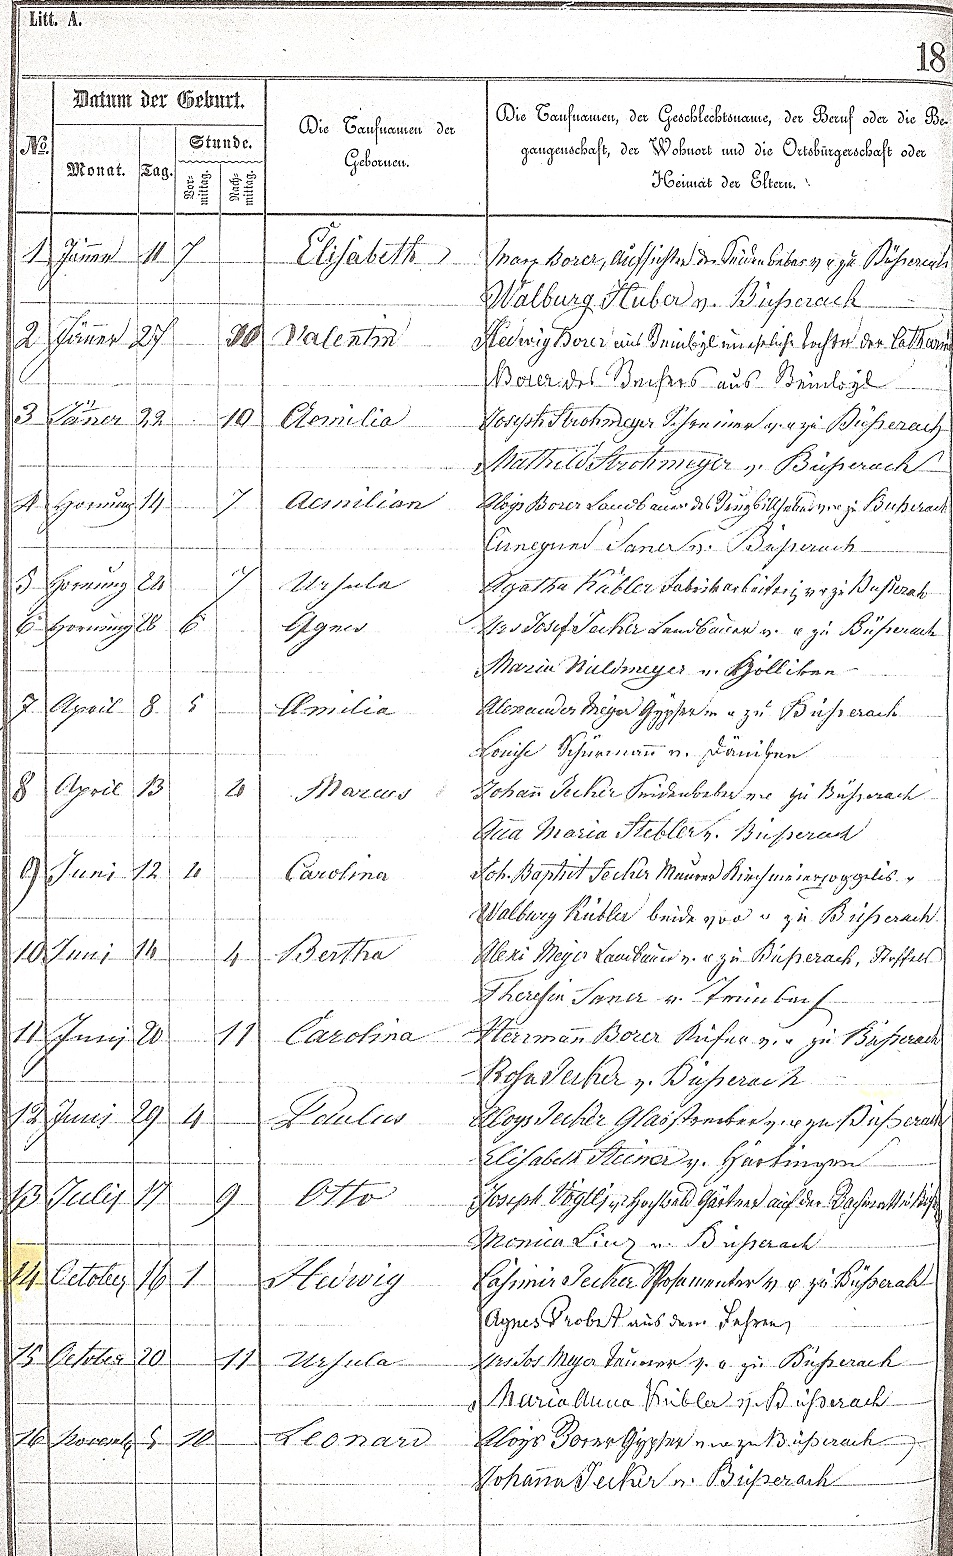 Litt. A.
18
Datum der Geburt.
Stunde.
No.
Monat.
Tag.
Vor-
mittag.
Nach-
mittag.
Die Taufnamen der
Gebornen.
Die Taufnamen, der Geschlechtsname, der Beruf oder die Be-
gangenschaft, der Wohnort und die Ortsbürgerschaft oder
Heimat der Eltern.
1 Jänner 11 7 Elisabeth Borer, zu Büßerach
Walburg Huber v. Büßerach
2 Jänner 27 Valentin Hedwig Borer aus Beinwyl uneheliche Tochter der Catharina
Borer des aus Beinwyl
3 Jänner 22 10 Aemilia Joseph Strohmeyer Schreiner v. u zu Büßerach
Mathild Strohmeyer v. Büßerach
4 Hornung 14 7 Aemilian Aloys Borer Landbauer des v u zu Büßerach
Cunegund Saner v. Büßerach
5 Hornung 24 7 Ursula Agatha Kübler Fabrikarbeiterin v u zu Büßerach
6 Hornung 28 6 Agnes Urs Josef Jecker Landbauer v. u zu Büßerach
Maria Waldmeyer v. Hölliken
7 April 8 5 Amilia Alexander Meyer Gypser v u zu Büßerach
Louise Schürmann v. Däniken
8 April 13 4 Marcus Johann Jecker Seidenweber v u zu Büßerach
Anna Maria Stebler v. Büßerach
9 Juni 12 4 Carolina Joh. Baptist Jecker Maurer
Walburg Kübler beide von u zu Büßerach
10 Juni 14 4 Bertha Alexi Meyer Landbauer v. u zu Büßerach, Stoffels
Theresia Saner v. Trimbach
11 Junij 20 11 Carolina Herrmann Borer Küfer v. u zu Büßerach
Rosa Jecker v. Büßerach
12 Juni 29 4 Paulus Aloys Jecker v. u zu Büßerach
Elisabeth Steiner v. Härkingen
13 Julij 17 9 Otto Joseph Vögtli v. Hochwald Gärtner auf der
Monica Linz v. Büßerach
14 October 16 1 Hedwig Casimir Jecker Posamenter v. u zu Büßerach
Agnes Probst aus dem Fehren
15 October 20 11 Ursula Urs Jos Meyer v. u zu Büßerach
Maria Anna Kübler v. Büßerach
16 November 5 10 Leonard Aloys Borer Gypser v u zu Büßerach
Johanna Jecker v. Büßerach